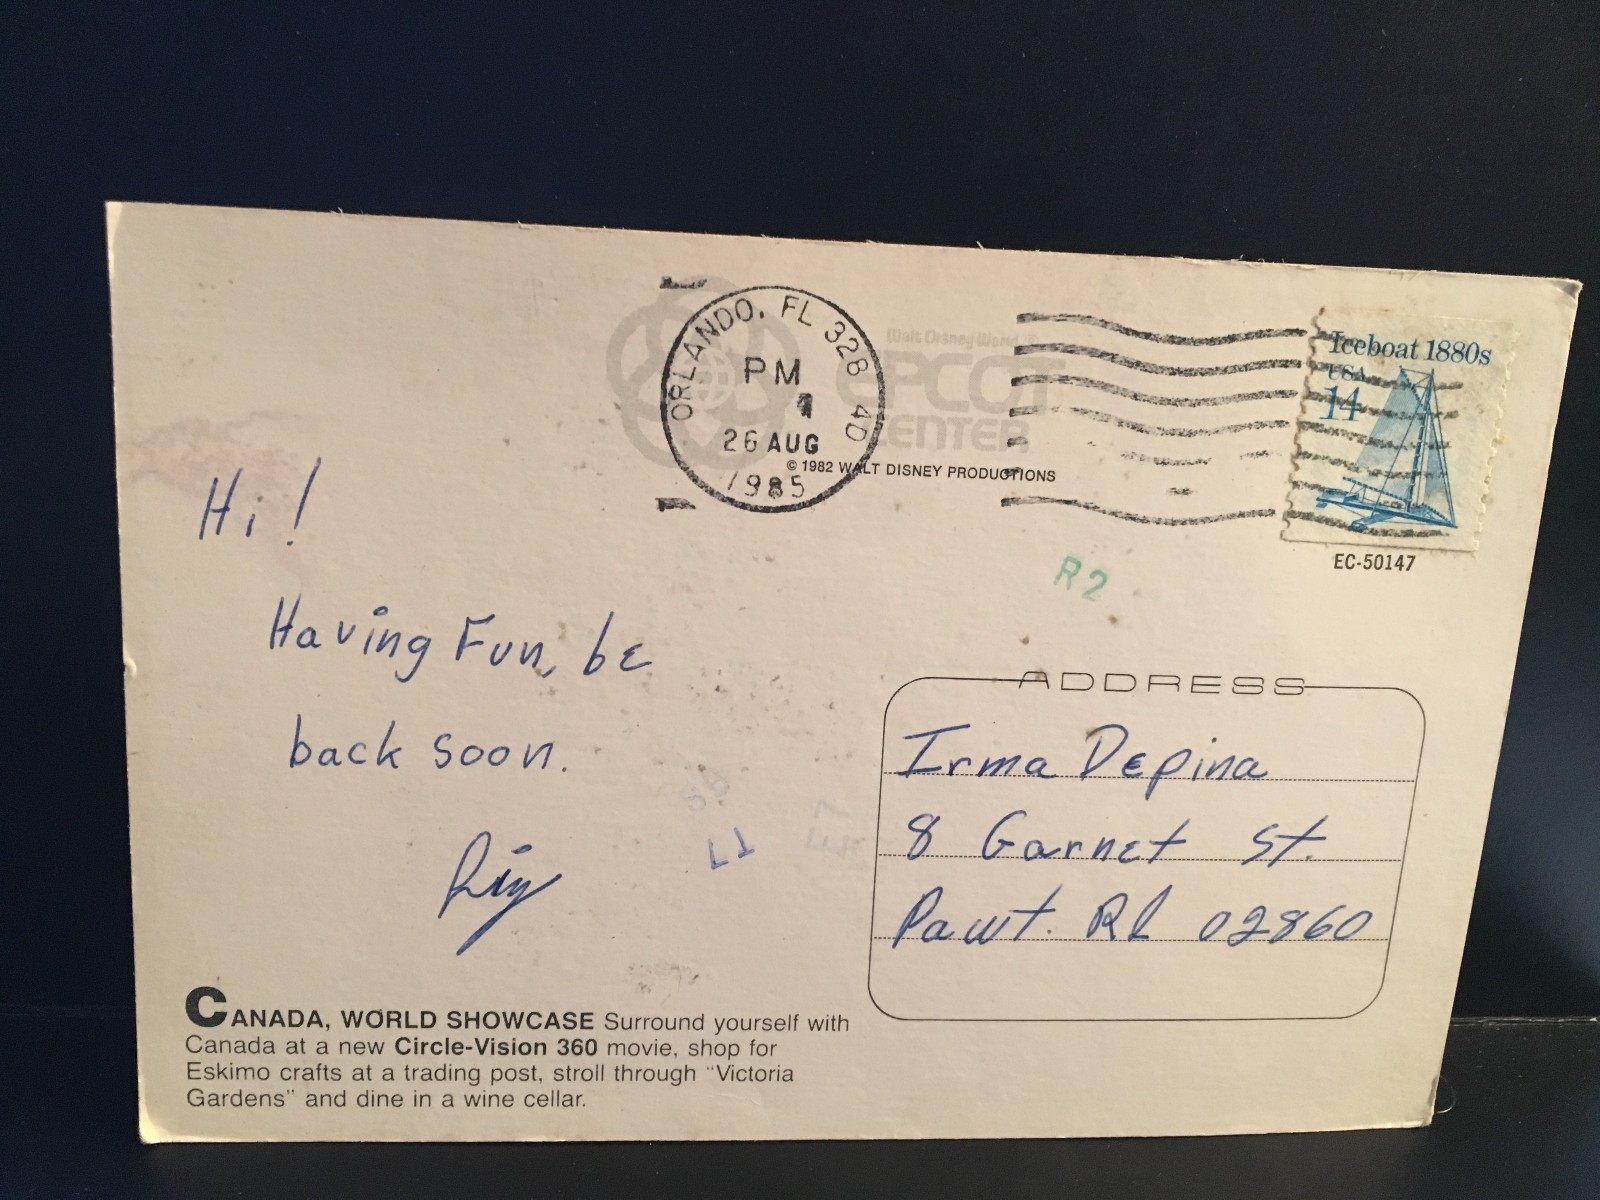 ORLANDO, FL 328 4D
PM
26 AUG
1985
Walt Disney World ®
EPCOT
CENTER
© 1982 WALT DISNEY PRODUCTIONS
Iceboat 1880s
USA
14
EC-50147
R2
Hi!
Having Fun, be
back soon.
ADDRESS
Irma Depina
8 Garnet St.
Pawt. RI 02860
CANADA, WORLD SHOWCASE Surround yourself with
Canada at a new Circle-Vision 360 movie, shop for
Eskimo crafts at a trading post, stroll through "Victoria
Gardens" and dine in a wine cellar.